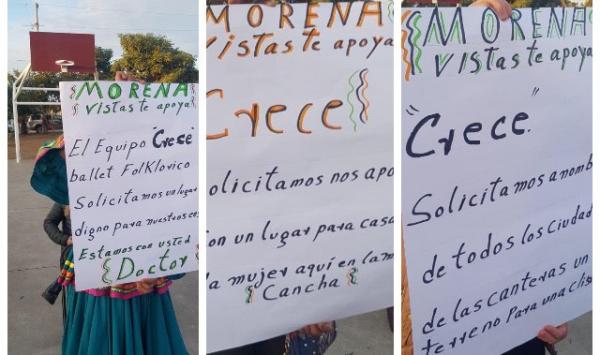 MORENA
vistas te apoya
El Equipo "Crece"
ballet Folklorico
Solicitamos un lugar
digno para nuestros
Estamos con usted
Doctor
MORENA
vistas te apoya
Crece
olicitamos nos apo
on un lugar para casa
a mujer aquí en la m
Cancha
MORENA
vistas te apoya
"Crece."
Solicitamos a nomb
de todos los ciudad
de las canteras un
terreno Para una